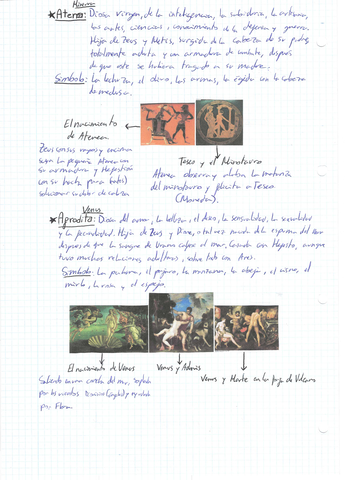 Minerva
*Atenea: Diosa virgen, de la inteligencia, la sabiduría, la artesanía,
las artes, ciencias, conocimiento de la defensa y guerra.
Hija de Zeus y Metis, surgida de la cabeza de su padre,
totalmente adulta y con armadura de combate, después
de que este se hubiera tragado a su madre.
Símbolo: La lechuza, el olivo, las armas, la égida con la cabeza
de medusa.
El nacimiento
de Atenea
Zeus con sus rayos y encima
suya la pequeña Atenea con
su armadura y Hefesto
con su hacha para
solucionar su dolor de cabeza
Teseo y el Minotauro
Atenea observa y alaba la
del minotauro y a Teseo
Venus
*Afrodita: Diosa del amor, la belleza, el deseo, la sensualidad, la sexualidad
y la fecundidad. Hija de Zeus y Dione, o tal vez nacida de la espuma del mar
después de que la sangre de Urano cayese al mar. Casada con Hefesto, aunque
tuvo muchas relaciones adúlteras, sobre todo con Ares.
Símbolo: La paloma, el pájaro, la manzana, la abeja, el cisne, el
mirto, la rosa y el espejo.
El nacimiento de Venus
Saliendo en una concha del mar, soplada
por los vientos y ayudada
por Flora.
Venus y Adonis
Venus y Marte en la fragua de Vulcano